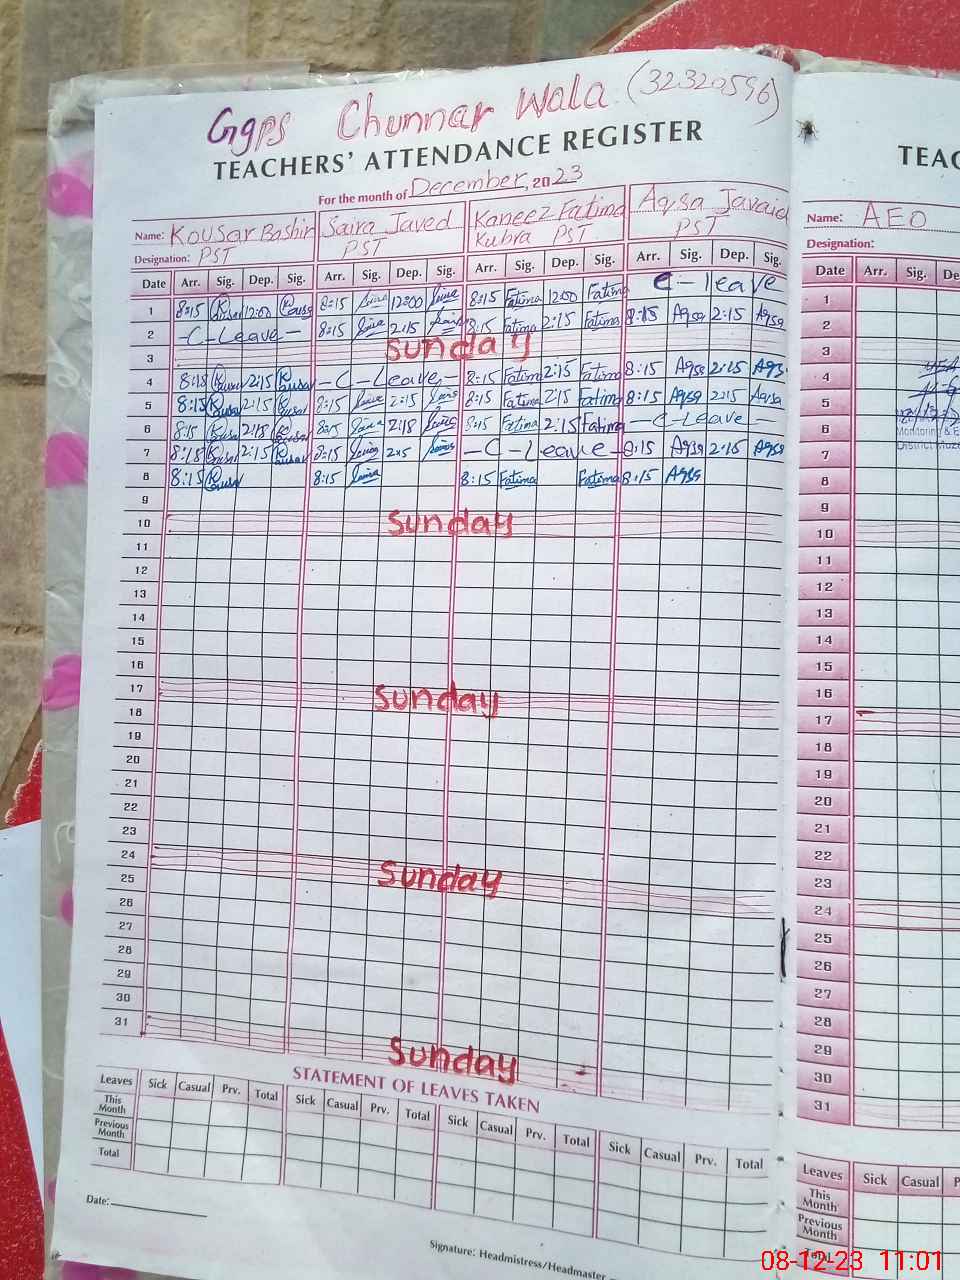 Ggps Chunnar Wala (32320596)
TEACHERS' ATTENDANCE REGISTER
For the month of December, 2023
Name: Kousar Bashir Saira Javed Kaneez Fatima Aqsa Javaid
Designation: PST PST Kubra PST PST
Date Arr. Sig. Dep. Sig. Arr. Sig. Dep. Sig. Arr. Sig. Dep. Sig. Arr. Sig. Dep. Sig.
1 8:15 12:00 8:15 12:00 8:15 Fatima 12:00 Fatima C-leave
2 -C-Leave- 8:15 2:15 8:15 Fatima 2:15 Fatima 8:15 Aqsa 2:15 Aqsa
3 Sunday
4 8:15 2:15 -C-Leave- 8:15 Fatima 2:15 Fatima 8:15 Aqsa 2:15 Aqsa
5 8:15 2:15 8:15 2:15 8:15 Fatima 2:15 Fatima 8:15 Aqsa 2:15 Aqsa
6 8:15 2:18 8:15 2:18 8:15 Fatima 2:15 Fatima -C-Leave-
7 8:15 2:15 8:15 2:15 -C-Leave- 8:15 Aqsa 2:15 Aqsa
8 8:15 8:15 8:15 Fatima Fatima 8:15 Aqsa
9
10 Sunday
11
12
13
14
15
16
17 Sunday
18
19
20
21
22
23
24 Sunday
25
26
27
28
29
30
31 Sunday
STATEMENT OF LEAVES TAKEN
Leaves Sick Casual Prv. Total Sick Casual Prv. Total Sick Casual Prv. Total Sick Casual Prv. Total
This Month
Previous Month
Total
Date:
Signature: Headmistress/Headmaster
TEAC
Name: AEO
Designation:
Date Arr. Sig. De
1
2
3
4
5
6
Monitoring & E
7
8
9
10
11
12
13
14
15
16
17
18
19
20
21
22
23
24
25
26
27
28
29
30
31
Leaves Sick Casual P
This Month
Previous Month
Total
08-12-23 11:01